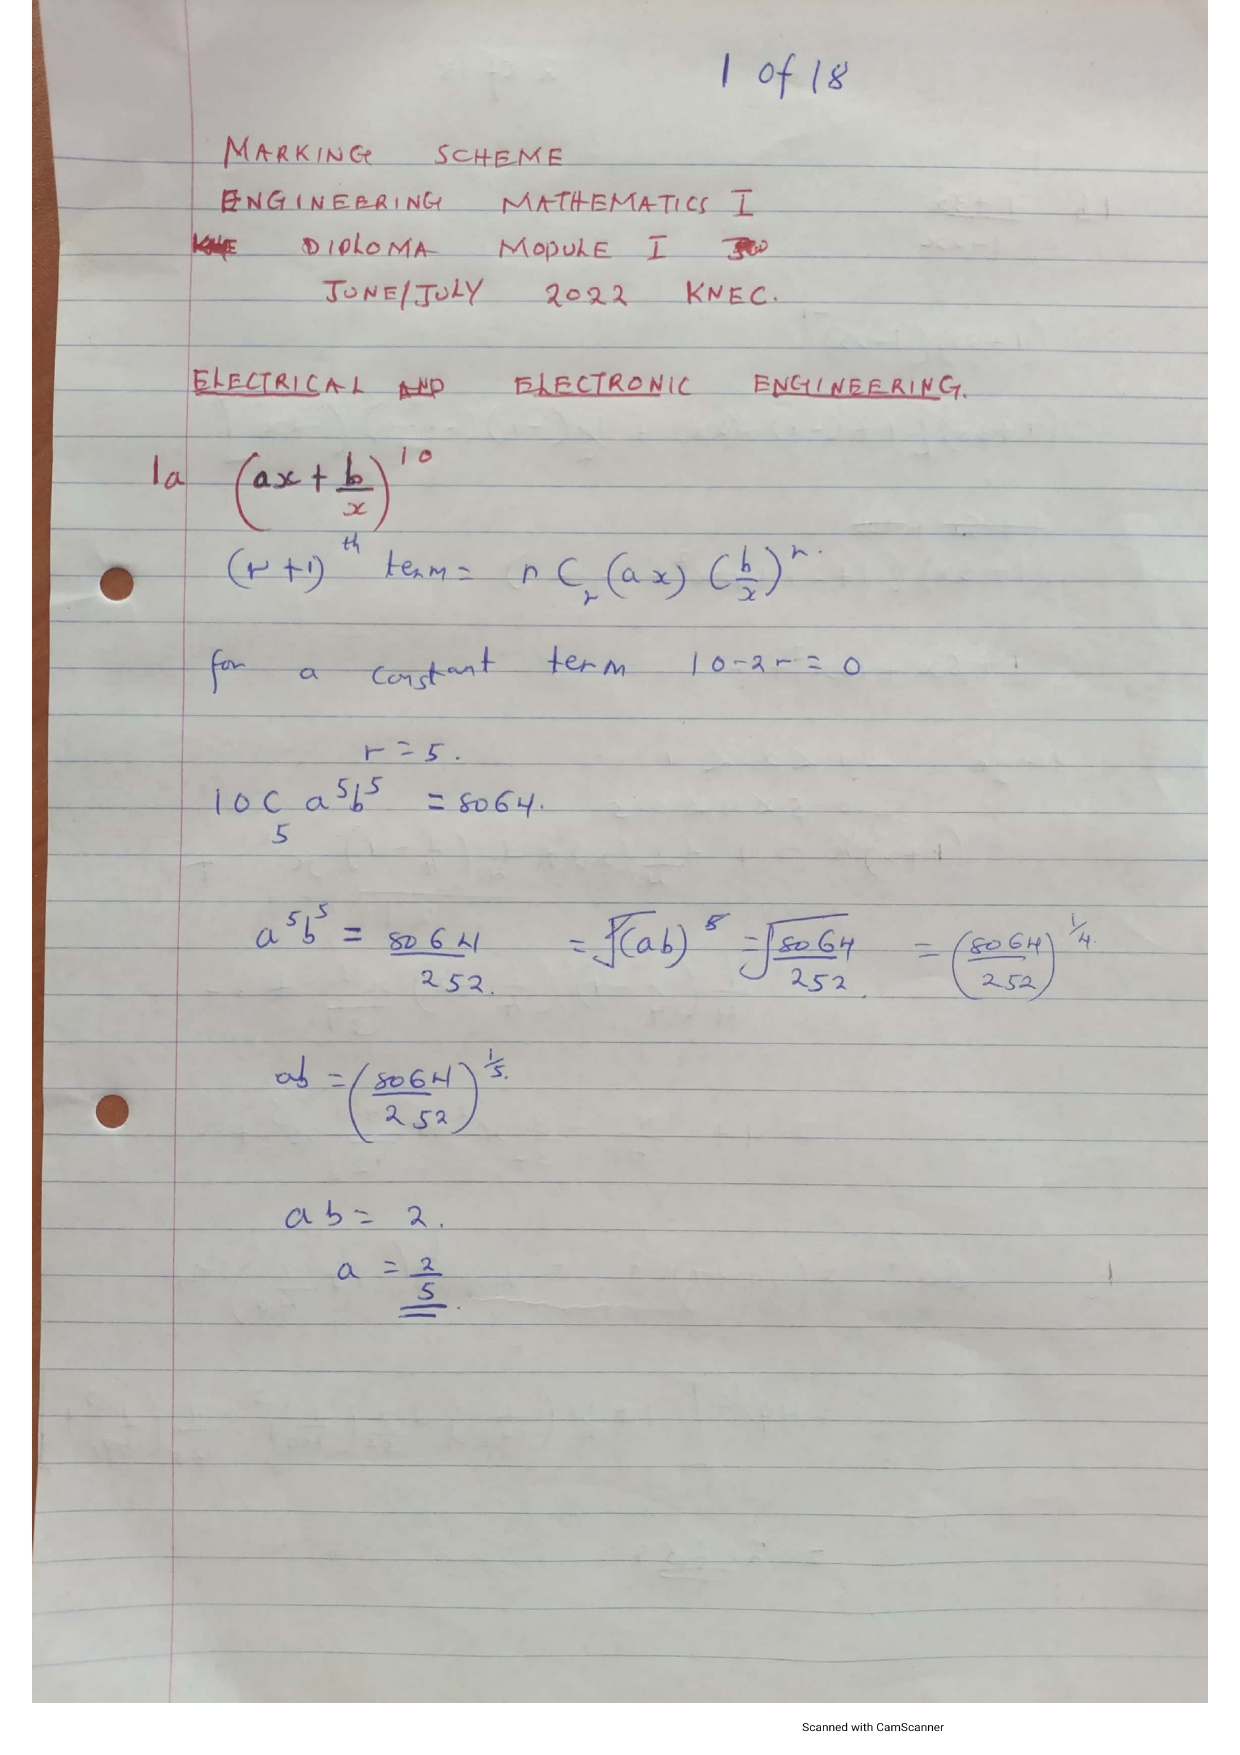 1 of 18
MARKING SCHEME
ENGINEERING MATHEMATICS I
DIPLOMA MODULE I
JUNE/JULY 2022 KNEC.
ELECTRICAL AND ELECTRONIC ENGINEERING.
1a (ax + b/x)^10
(r+1)^th term = nC_r (ax) (b/x)^r.
for a constant term 10-2r = 0
r = 5.
10C_5 a^5b^5 = 8064.
a^5b^5 = 8064/252. = √(ab)^5 = √8064/252. = (8064/252)^1/4.
ab = (8064/252)^1/5.
ab = 2.
a = 2/5.
Scanned with CamScanner